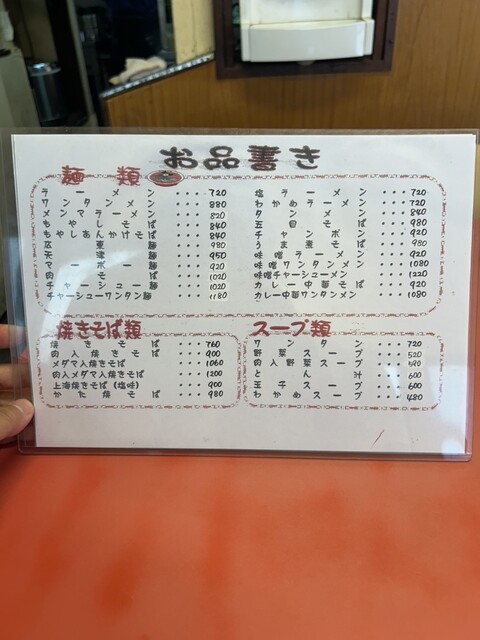 お品書き
麺類
ラーメン ・・・720
ワンタンメン ・・・880
メンマラーメン ・・・820
もやしそば ・・・840
もやしあんかけそば ・・・840
広東麺 ・・・980
天津麺 ・・・950
マーボー麺 ・・・920
肉そば ・・・1020
チャーシュー麺 ・・・1020
チャーシューワンタン麺 ・・・1180
塩ラーメン ・・・720
わかめラーメン ・・・720
タンメン ・・・840
五目そば ・・・980
チャンポン ・・・920
うま煮そば ・・・980
味噌ラーメン ・・・920
味噌ワンタンメン ・・・1080
味噌チャーシューメン ・・・1220
カレー中華そば ・・・920
カレー中華ワンタンメン ・・・1080
焼きそば類
焼きそば ・・・760
肉入焼きそば ・・・900
メダマ入焼きそば ・・・1060
肉入メダマ入焼きそば ・・・1200
上海焼きそば(塩味) ・・・900
かた焼そば ・・・980
スープ類
ワンタン ・・・720
野菜スープ ・・・520
肉入野菜スープ ・・・690
とん汁 ・・・600
玉子スープ ・・・600
わかめスープ ・・・480